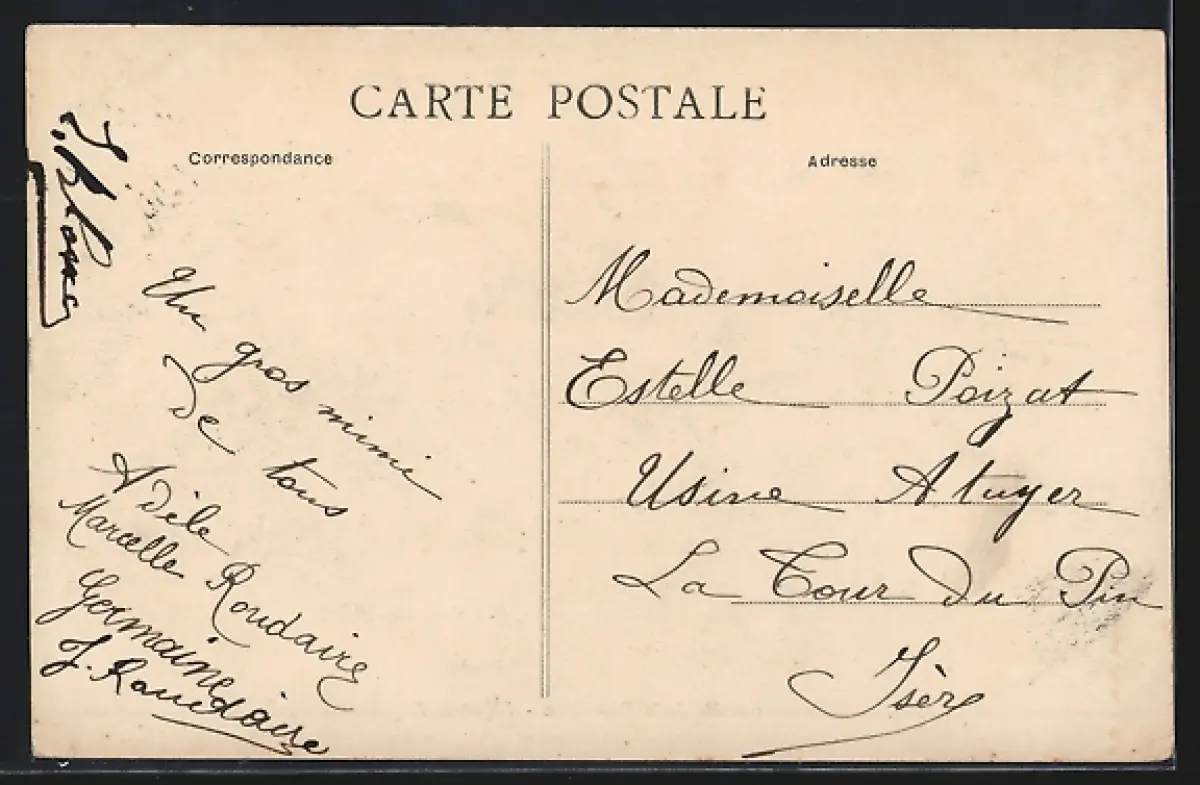 CARTE POSTALE
Correspondance
Adresse
Un gros mimi
de tous
Adèle
Marcelle Roudaire
Germaine
J. Roudaire
Mademoiselle
Estelle Poizat
Usine Atuyer
La Tour du Pin
Isère